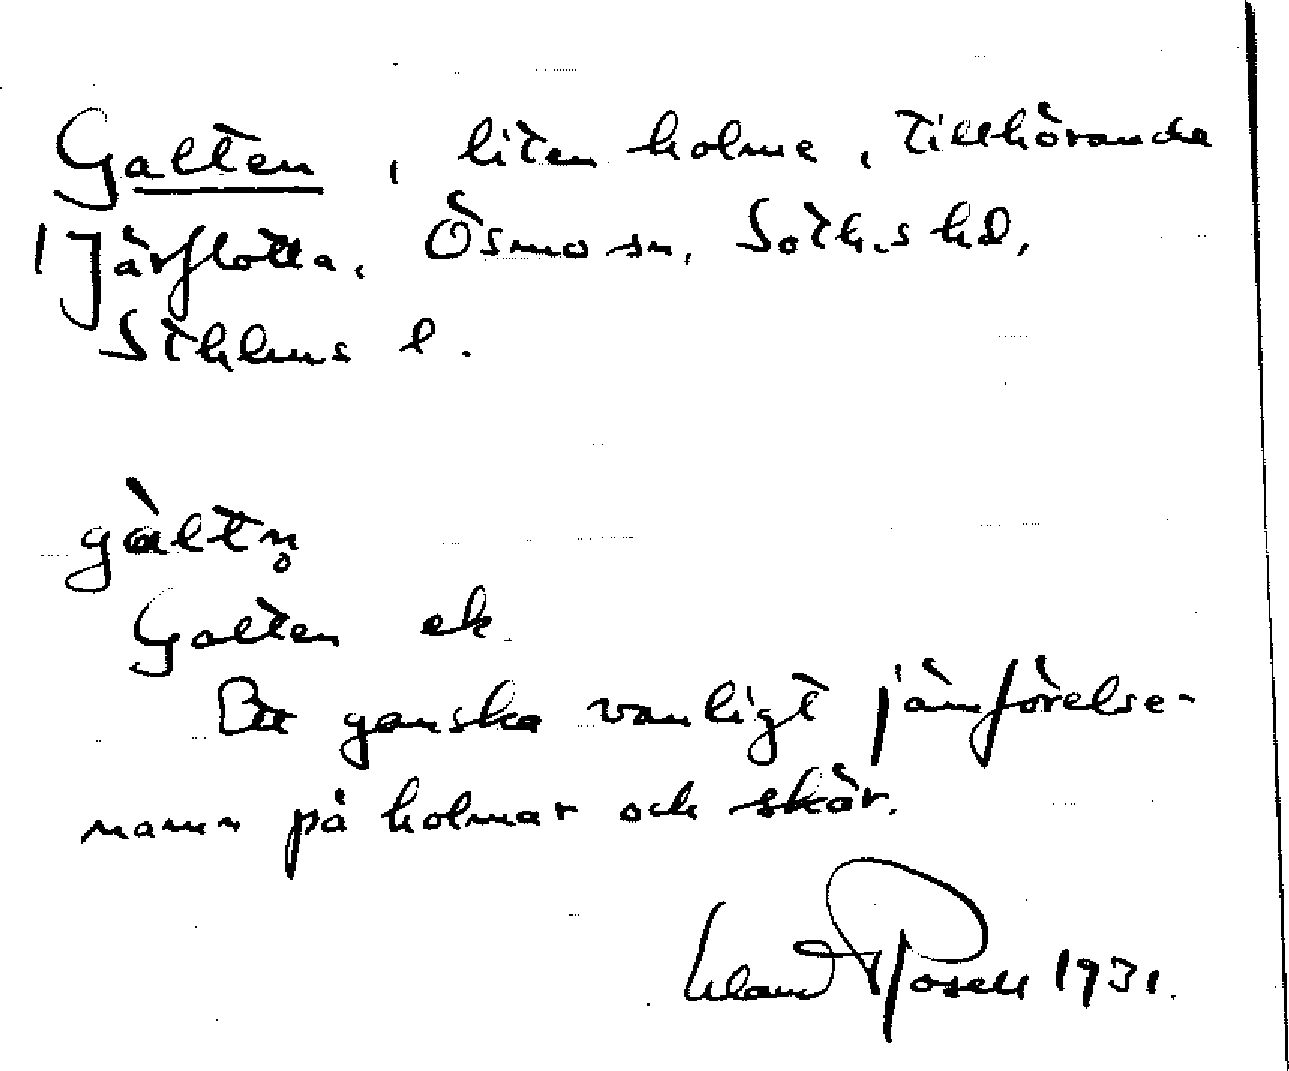 Galten, liten holme, tillhörande
Järflotta, Ösmo sn, Soth.s hd,
Sthlms l.
gàltn̥
Galten ek
Ett ganska vanligt jämförelse-
namn på holmar och skär.
Erland Rosell 1931.